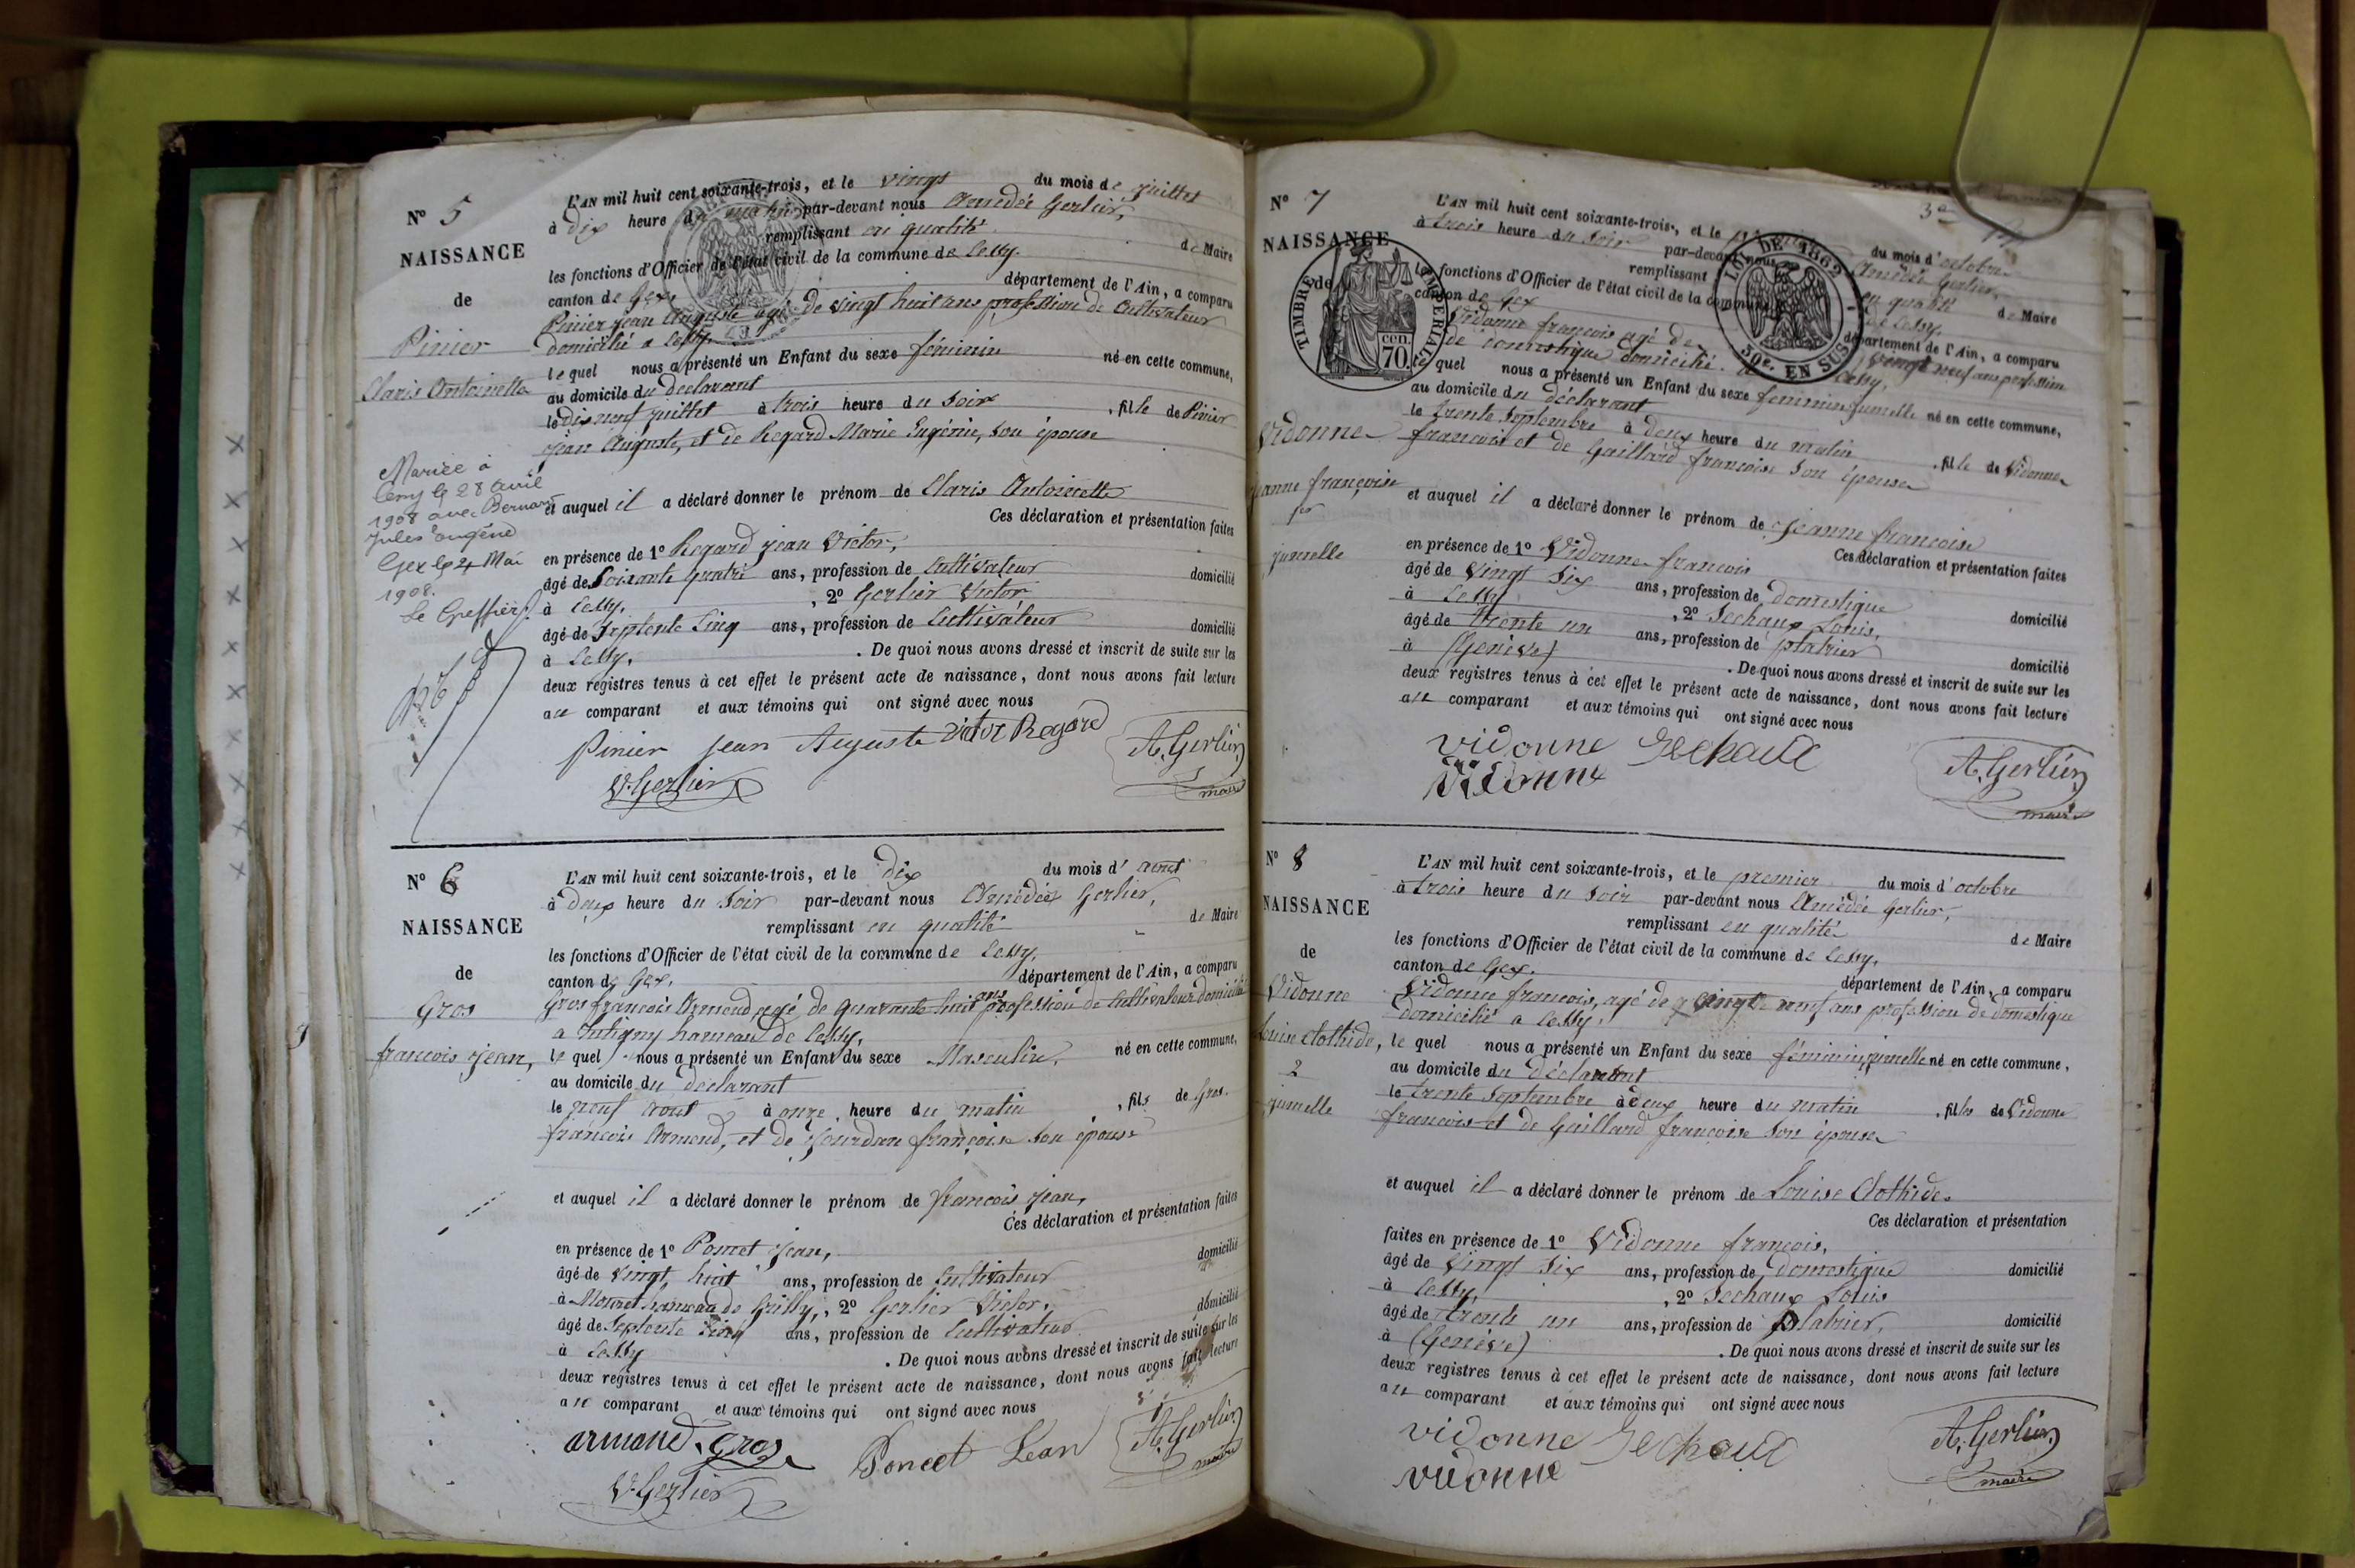 N° 5
NAISSANCE
de
Pinier
Claris Antoinette
Mariée à
Cessy le 28 avril
1908 avec Bernard
Jules Eugène
Gex le 4 Mai
1908.
Le Greffier
L'AN mil huit cent soixante-trois, et le vingt du mois de juillet
à dix heure du matin par-devant nous Amédée Gerlier,
remplissant en qualité de Maire
les fonctions d'Officier de l'état civil de la commune de Cessy.
canton de Gex, département de l'Ain, a comparu
Pinier jean Auguste agé de vingt huit ans profession de Cultivateur
domicilié a Cessy
lequel nous a présenté un Enfant du sexe féminin né en cette commune,
au domicile du déclarant
le dix neuf juillet à trois heure du Soir , fille de Pinier
jean Auguste, et de Regard Marie Eugénie, son épouse
et auquel il a déclaré donner le prénom de Claris Antoinette
Ces déclaration et présentation faites
en présence de 1° Regard jean Victor,
âgé de Soixante quatre ans, profession de Cultivateur domicilié
à Cessy, , 2° Gerlier Victor
âgé de Septente Cinq ans, profession de Cultivateur domicilié
à Cessy, . De quoi nous avons dressé et inscrit de suite sur les
deux registres tenus à cet effet le présent acte de naissance, dont nous avons fait lecture
au comparant et aux témoins qui ont signé avec nous
Pinier jean Auguste Victor Regard A. Gerlier
V. Gerlier maire
N° 6
NAISSANCE
de
Gros
francois jean,
L'AN mil huit cent soixante-trois, et le dix du mois d'aout
à deux heure du Soir par-devant nous Amédée Gerlier,
remplissant en qualité de Maire
les fonctions d'Officier de l'état civil de la commune de Cessy,
canton de Gex, département de l'Ain, a comparu
Gros francois Armand agé de quarante huit ans profession de Cultivateur domicilié
a hameau de Cessy,
lequel nous a présenté un Enfant du sexe Masculin, né en cette commune,
au domicile du déclarant
le neuf aout à onze heure du matin , fils de Gros.
francois Armand, et de Jourdan françoise son épouse
et auquel il a déclaré donner le prénom de francois jean,
Ces déclaration et présentation faites
en présence de 1° Poncet Jean,
âgé de vingt huit ans, profession de Cultivateur domicilié
à hameau de Grilly, , 2° Gerlier Victor,
âgé de Septente Cinq ans, profession de Cultivateur domicilié
à Cessy . De quoi nous avons dressé et inscrit de suite sur les
deux registres tenus à cet effet le présent acte de naissance, dont nous avons fait lecture
au comparant et aux témoins qui ont signé avec nous
armand Gros Poncet Jean A. Gerlier
V. Gerlier maire
N° 7
NAISSANCE
de
TIMBRE IMPÉRIAL
70 cen.
LOI DE 1862
50e. EN SUS
Vidonne
jeanne françoise
jumelle
L'AN mil huit cent soixante-trois, et le du mois d'octobre
à trois heure du Soir par-devant nous Amédée Gerlier,
remplissant en qualité de Maire
les fonctions d'Officier de l'état civil de la commune de Cessy,
canton de Gex département de l'Ain, a comparu
Vidonne francois agé de vingt neuf ans profession
de domestique domicilié a Cessy,
lequel nous a présenté un Enfant du sexe féminin jumelle né en cette commune,
au domicile du déclarant
le trente Septembre à deux heure du matin , fille de Vidonne
francois et de Gaillard françoise son épouse
et auquel il a déclaré donner le prénom de jeanne francoise
Ces déclaration et présentation faites
en présence de 1° Vidonne francois
âgé de vingt Six ans, profession de domestique domicilié
à Cessy , 2° Sechaux Louis,
âgé de trente un ans, profession de platrier domicilié
à (Genève) . De quoi nous avons dressé et inscrit de suite sur les
deux registres tenus à cet effet le présent acte de naissance, dont nous avons fait lecture
au comparant et aux témoins qui ont signé avec nous
vidonne Sechaux A. Gerlier
vidonne maire
N° 8
NAISSANCE
de
Vidonne
Louise Clothide,
2
jumelle
L'AN mil huit cent soixante-trois, et le premier du mois d'octobre
à trois heure du Soir par-devant nous Amédée Gerlier,
remplissant en qualité de Maire
les fonctions d'Officier de l'état civil de la commune de Cessy,
canton de Gex. département de l'Ain, a comparu
Vidonne francois, agé de vingt neuf ans profession de domestique
domicilié a Cessy,
lequel nous a présenté un Enfant du sexe féminin, jumelle né en cette commune,
au domicile du déclarant
le trente Septembre à deux heure du matin , fille de Vidonne
francois et de Gaillard françoise son épouse
et auquel il a déclaré donner le prénom de Louise Clothide.
Ces déclaration et présentation
faites en présence de 1° Vidonne francois,
âgé de vingt Six ans, profession de domestique domicilié
à Cessy, , 2° Sechaux Louis
âgé de trente un ans, profession de platrier, domicilié
à (Genève) . De quoi nous avons dressé et inscrit de suite sur les
deux registres tenus à cet effet le présent acte de naissance, dont nous avons fait lecture
au comparant et aux témoins qui ont signé avec nous
vidonne Sechaux A. Gerlier
vidonne maire